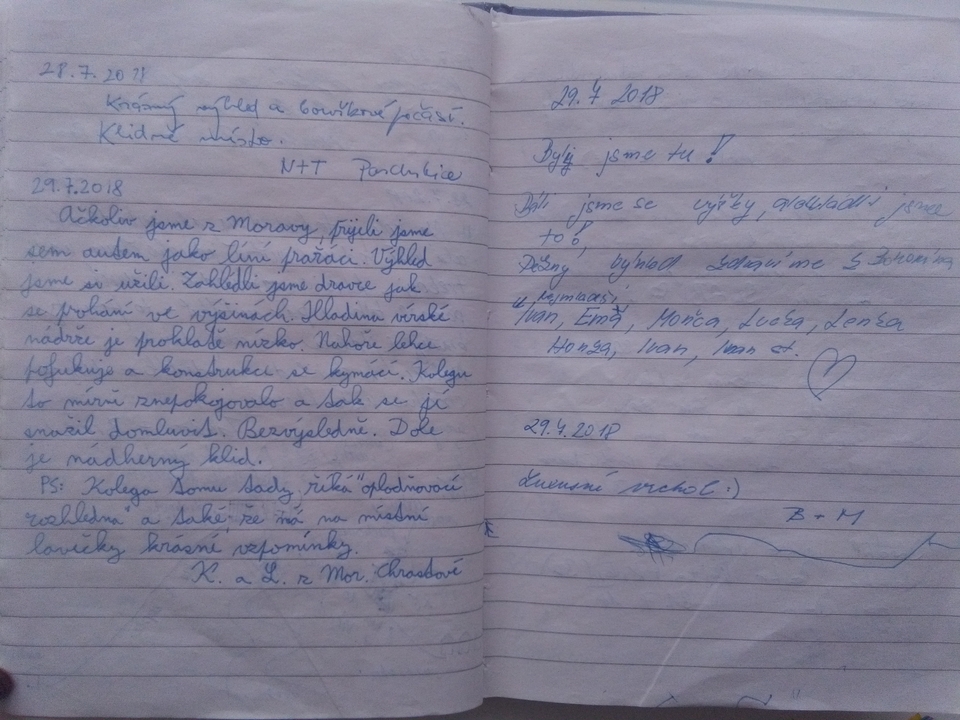 28.7.2018
Krásný výhled a bouřkové počasí.
Klidné místo.
N+T
29.7.2018
Ačkoliv jsme z Moravy, přijeli jsme
sem autem jako líní pražáci. Výhled
jsme si užili. Zahlédli jsme dravce jak
se prohání ve výšinách. Hladina vírské
nádrže je proklatě nízko. Nahoře lehce
pofukuje a konstrukce se kymácí. Kolegu
to mírně znepokojovalo a tak se jí
snažil domluvit. Bezvýsledně. Dole
je nádherný klid.
PS: Kolega tomu tady říká "oplodňovací
rozhledna" a také, že má na místní
lavičky krásné vzpomínky.
K. a L. z Mor. Chrastové
29.7 2018
Byli jsme tu!
Báli jsme se výšky, zvládli jsme
to!
Pěkný výhled
Ivan, Ema, Monča, Lucka, Lenka
Honza, Ivan, Ivan st.
29.7.2018
vrchol :)
B + M